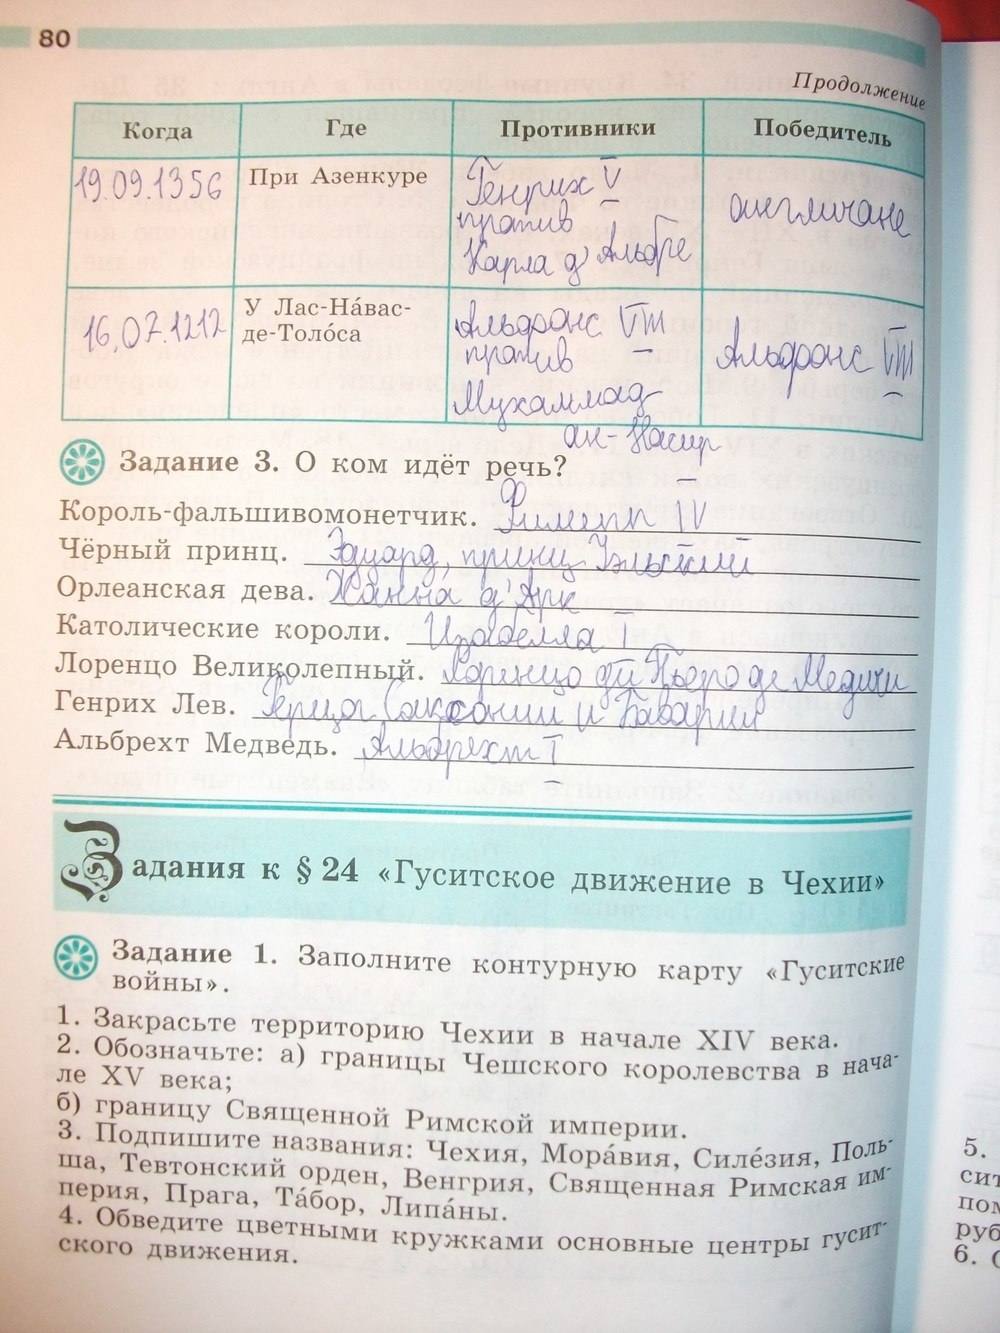 80
Продолжение
Когда Где Противники Победитель
19.09.1356 При Азенкуре Генрих V англичане
против
Карла д'Альбре
16.07.1212 У Лас-На́вас- Альфонс VIII Альфонс VIII
де-Толо́са против
Мухаммад
ан-Насир
Задание 3. О ком идёт речь?
Король-фальшивомонетчик. Филипп IV
Чёрный принц. Эдуард, принц Уэльский
Орлеанская дева. Жанна д'Арк
Католические короли. Изабелла I
Лоренцо Великолепный. Лоренцо ди Пьеро де Медичи
Генрих Лев. Герцог Саксонии и Баварии
Альбрехт Медведь. Альбрехт I
Задания к § 24 «Гуситское движение в Чехии»
Задание 1. Заполните контурную карту «Гуситские
войны».
1. Закрасьте территорию Чехии в начале XIV века.
2. Обозначьте: а) границы Чешского королевства в нача-
ле XV века;
б) границу Священной Римской империи.
3. Подпишите названия: Чехия, Мора́вия, Силе́зия, Поль-
ша, Тевтонский орден, Венгрия, Священная Римская им-
перия, Прага, Та́бор, Липа́ны.
4. Обведите цветными кружками основные центры гусит-
ского движения.
5.
сит
пом
руб
6.